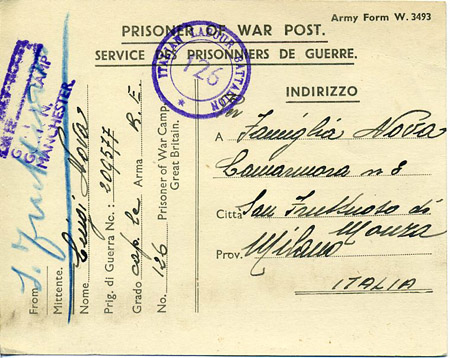 Army Form W. 3493
PRISONER OF WAR POST.
SERVICE DES PRISONNIERS DE GUERRE.
ITALIAN LABOUR BATTALION
126
MANCHESTER.
INDIRIZZO
A Famiglia Nova
Lamarmora n 8
Città San Fruttuoso di
Monza
Prov. Milano
ITALIA
From
Mittente.
Nome Luigi Nova
Prig. di Guerra No.: 209577
Grado cap. le Arma R. E.
No. 126 Prisoner of War Camp
Great Britain.